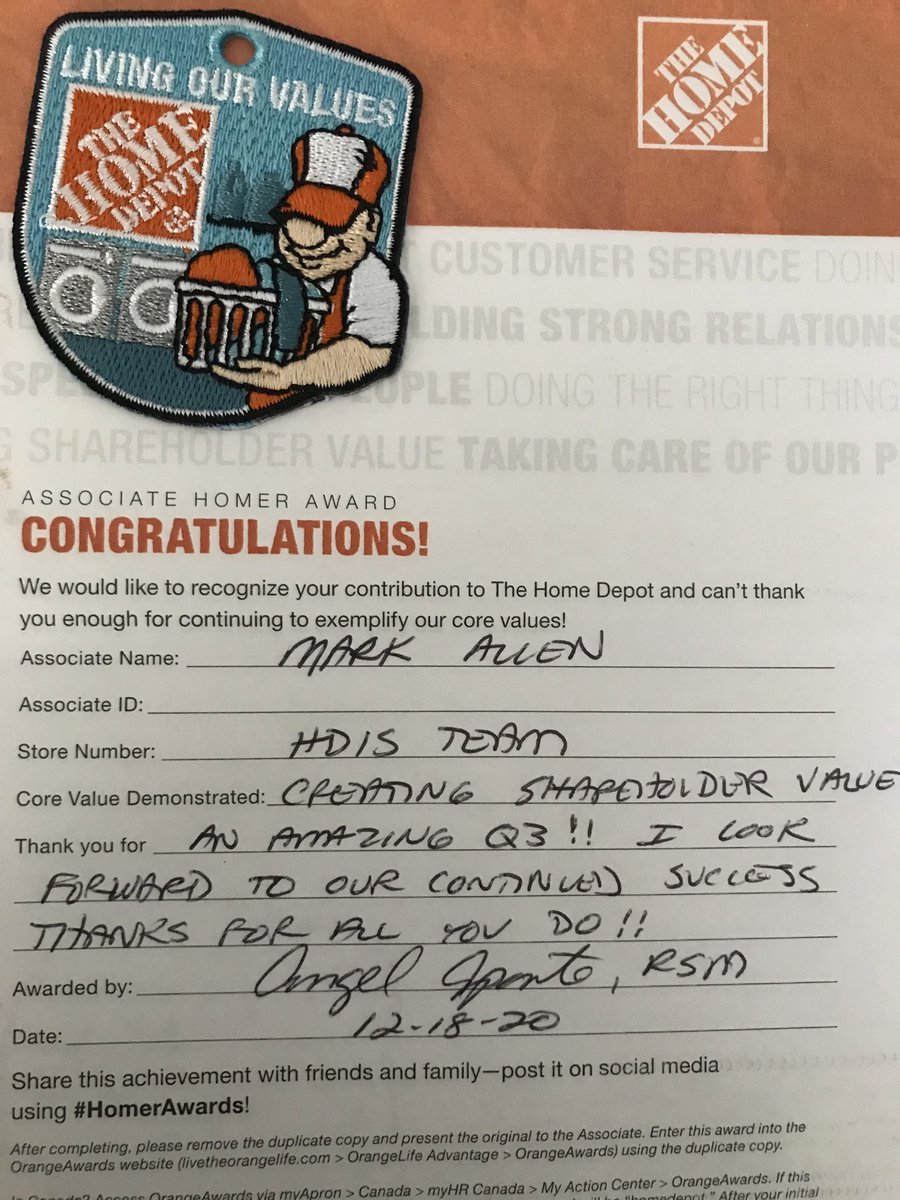 LIVING OUR VALUES
THE
HOME
DEPOT
THE
HOME
DEPOT
CUSTOMER SERVICE DOIN
LDING STRONG RELATIONS
SPE PEOPLE DOING THE RIGHT THING
G SHAREHOLDER VALUE TAKING CARE OF OUR P
ASSOCIATE HOMER AWARD
CONGRATULATIONS!
We would like to recognize your contribution to The Home Depot and can't thank
you enough for continuing to exemplify our core values!
Associate Name: MARK ALLEN
Associate ID:
Store Number: HDIS TEAM
Core Value Demonstrated: CREATING SHAREHOLDER VALUE
Thank you for AN AMAZING Q3!! I LOOK
FORWARD TO OUR CONTINUED SUCCESS
THANKS FOR ALL YOU DO!!
Awarded by: Angel , RSM
Date: 12-18-20
Share this achievement with friends and family—post it on social media
using #HomerAwards!
After completing, please remove the duplicate copy and present the original to the Associate. Enter this award into the
OrangeAwards website (livetheorangelife.com > OrangeLife Advantage > OrangeAwards) using the duplicate copy.
In Canada? Access OrangeAwards via myApron > Canada > myHR Canada > My Action Center > OrangeAwards. If this
will be "homedepot." After your initial